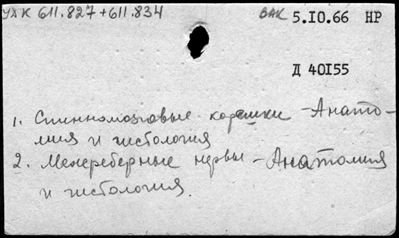 УДК 611.827+611.834
ВАК 5.IO.66 НР
Д 40I55
1. Спинномозговые корешки - Анато-
мия и гистология
2. Межреберные нервы - Анатомия
и гистология.